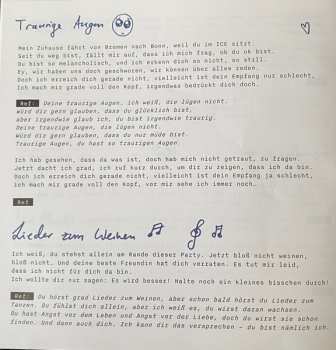 Traurige Augen
Mein Zuhause fährt von Bremen nach Bonn, weil du im ICE sitzt.
Seit du weg bist, fällt mir auf, dass ich mich frag, ob du ok bist.
Du bist so melancholisch, und ich erkenn dich so nicht, so still.
Ey, wir haben uns doch geschworen, wir können über alles reden.
Doch ich erreich dich gerade nicht, vielleicht ist dein Empfang nur schlecht,
Ich mach mir grade voll den Kopf, irgendwas bedrückt dich doch.
Ref: Deine traurige Augen, ich weiß, die lügen nicht.
Würd dir gern glauben, dass du glücklich bist,
aber irgendwie glaub ich, du bist irgendwie traurig.
Deine traurige Augen, die lügen nicht.
Würd dir gern glauben, dass du nur müde bist.
Traurige Augen, du hast so traurigen Augen
Ich hab gesehen, dass da was ist, doch hab mich nicht getraut, zu fragen.
Jetzt dacht ich grad, ich ruf kurz durch, um dir zu zeigen, dass ich da bin.
Doch ich erreich dich gerade nicht, vielleicht ist dein Empfang ja schlecht,
ich mach mir grade voll den Kopf, vor mir sehe ich immer noch.
Ref
Lieder zum Weinen
Ich weiß, du stehst allein am Rande dieser Party. Jetzt bloß nicht weinen,
bloß nicht. Und deine beste Freundin hat dich verraten. Es tut mir leid,
dass ich nicht für dich da bin.
Ich wollte dir nur sagen: Es wird besser! Halte noch ein kleines bisschen durch!
Ref: Du hörst grad Lieder zum Weinen, aber schon bald hörst du Lieder zum
Tanzen. Du fühlst dich allein, aber ich weiß es, du wirst daran wachsen.
Du hast Angst vor dem Leben und Angst vor der Liebe, doch du wirst sie schon
finden. Und dann auch dich. Ich kann dir das versprechen - du bist nämlich ich.